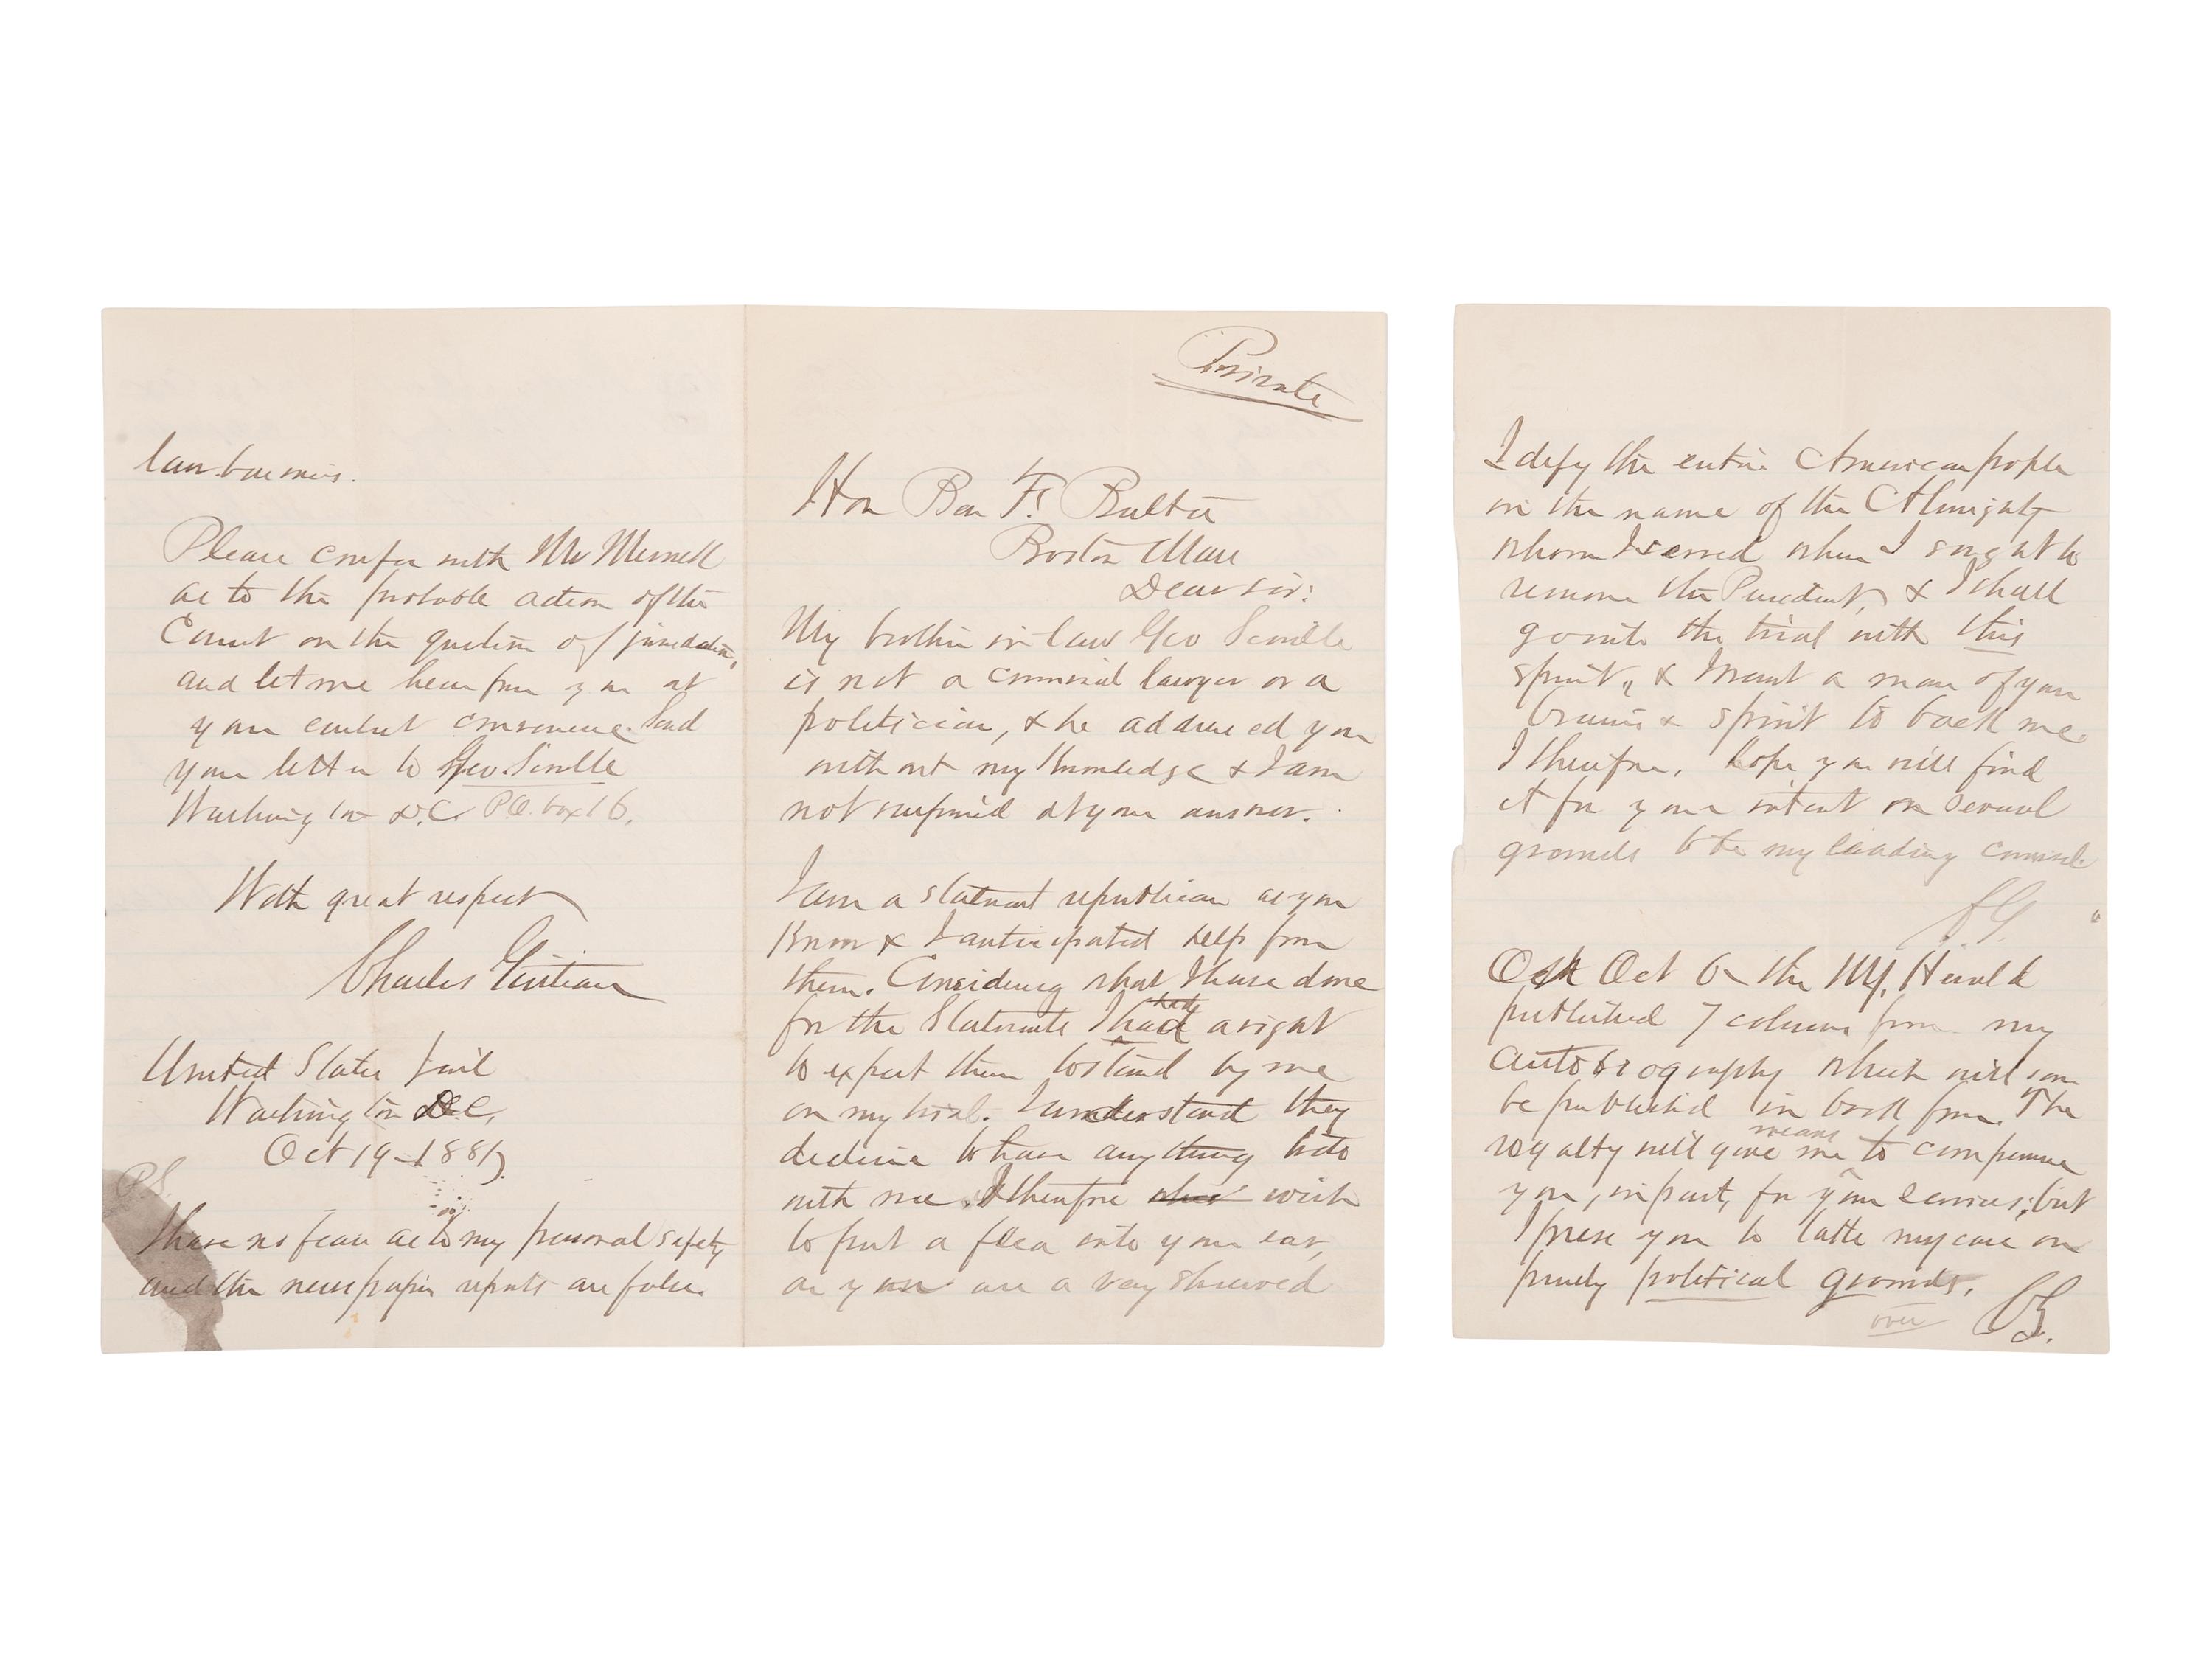 law business.
Please confer with Mr Merrick
as to the probable action of the
Court on the question of jurisdiction,
and let me hear from you at
your earliest convenience. Send
your letter to Geo Scoville
Washington D.C. P.O. box 16.
With great respect
Charles Guiteau
United States Jail
Washington D.C.
Oct 19-1881
P.S.
I have no fear as to my personal safety
and the newspaper reports are false.
Private
Hon Ben F. Butler
Boston Mass
Dear sir:
My brother in law Geo Scoville
is not a criminal lawyer or a
politician, & he addressed you
without my knowledge & I am
not surprised at your answer.
I am a stalwart republican as you
know & I anticipated help from
them. Considering what I have done
for the Stalwarts I had a right
to expect them to stand by me
on my trial. I understand they
decline to have anything to do
with me. I therefore wish
to put a flea into your ear,
as you are a very shrewd
I defy the entire American people
in the name of the Almighty
whom I served when I sought to
remove the President, & I shall
go into the trial with this
spirit, & I want a man of your
brains & spirit to back me.
I therefore, hope you will find
it for your interest on several
grounds to be my leading counsel.
CG
Oct 6 the N.Y. Herald
published 7 columns from my
autobiography which will soon
be published in book form. The
royalty will give me means to compensate
you, in part, for your services; but
I press you to take my case on
purely political grounds.
over CG.